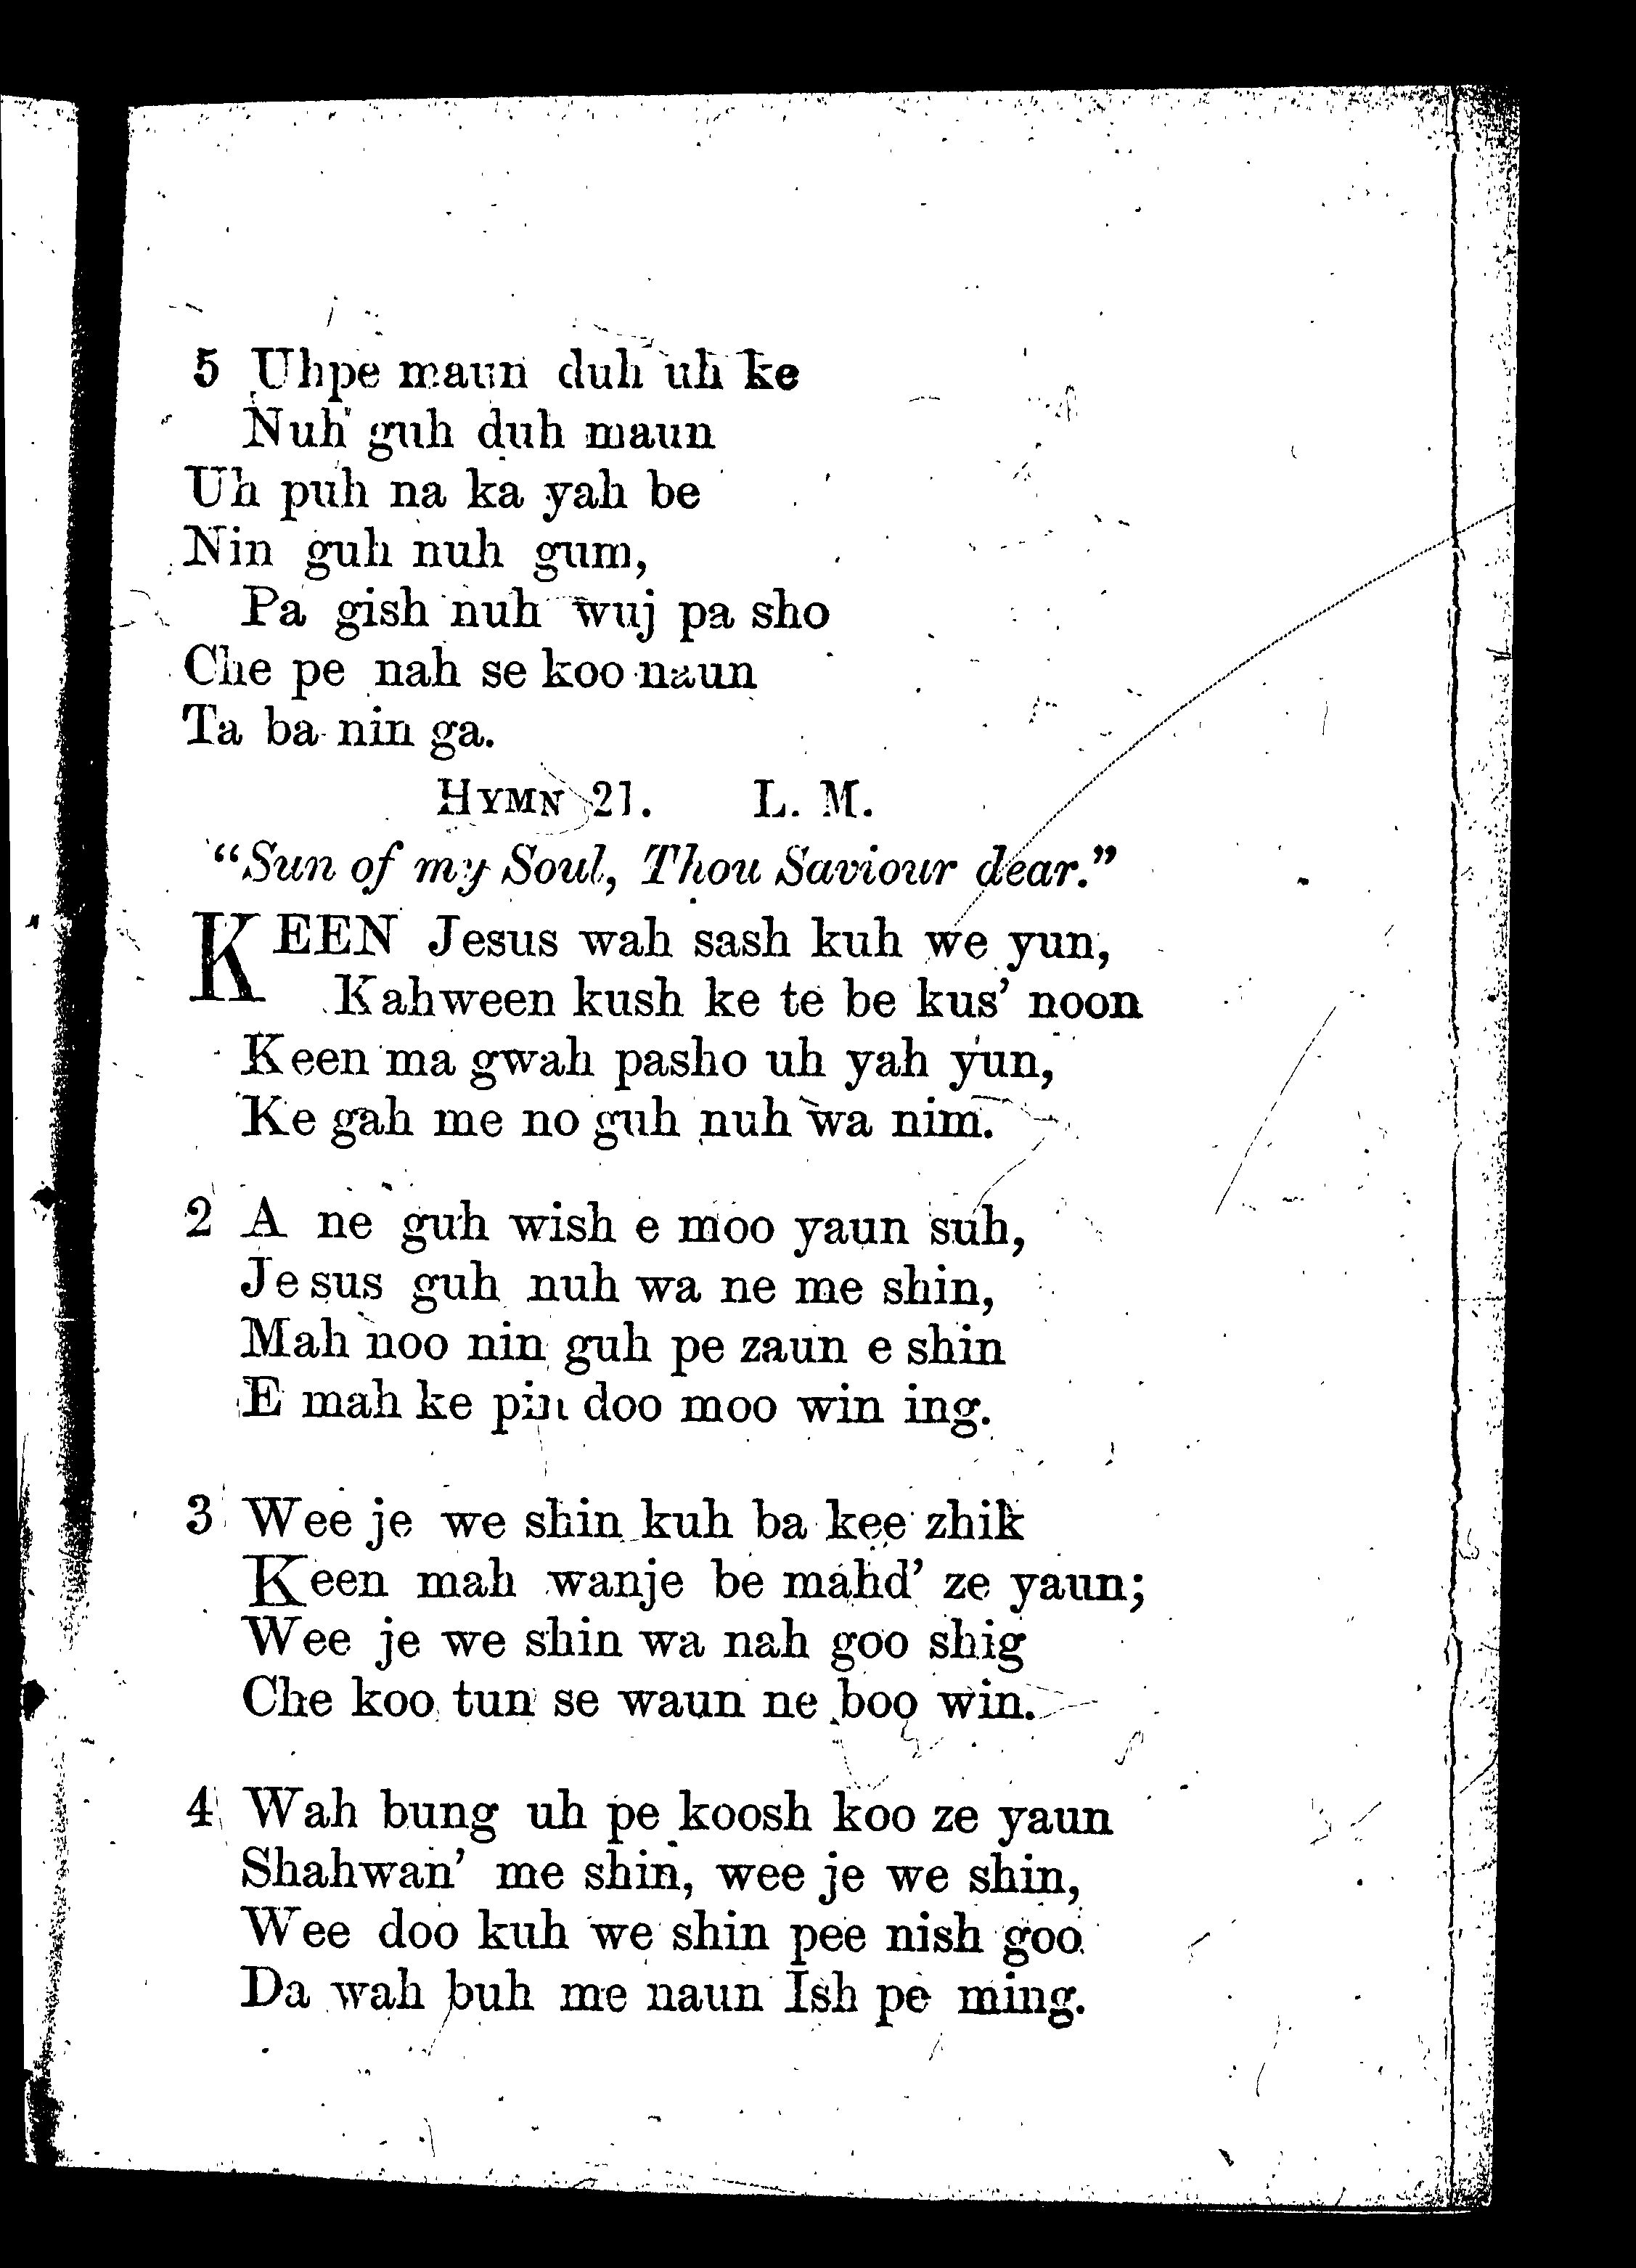 5 Uhpe maun duh uh ke
Nuh guh duh maun
Uh puh na ka yah be
Nin guh nuh gum,
Pa gish nuh wuj pa sho
Che pe nah se koo naun
Ta ba nin ga.
HYMN 21. L. M.
"Sun of my Soul, Thou Saviour dear."
KEEN Jesus wah sash kuh we yun,
Kahween kush ke te be kus' noon
Keen ma gwah pasho uh yah yun,
Ke gah me no guh nuh wa nim.
2 A ne guh wish e moo yaun suh,
Je sus guh nuh wa ne me shin,
Mah noo nin guh pe zaun e shin
E mah ke pin doo moo win ing.
3 Wee je we shin kuh ba kee zhik
Keen mah wanje be mahd' ze yaun;
Wee je we shin wa nah goo shig
Che koo tun se waun ne boo win.
4 Wah bung uh pe koosh koo ze yaun
Shahwan' me shin, wee je we shin,
Wee doo kuh we shin pee nish goo
Da wah buh me naun Ish pe ming.